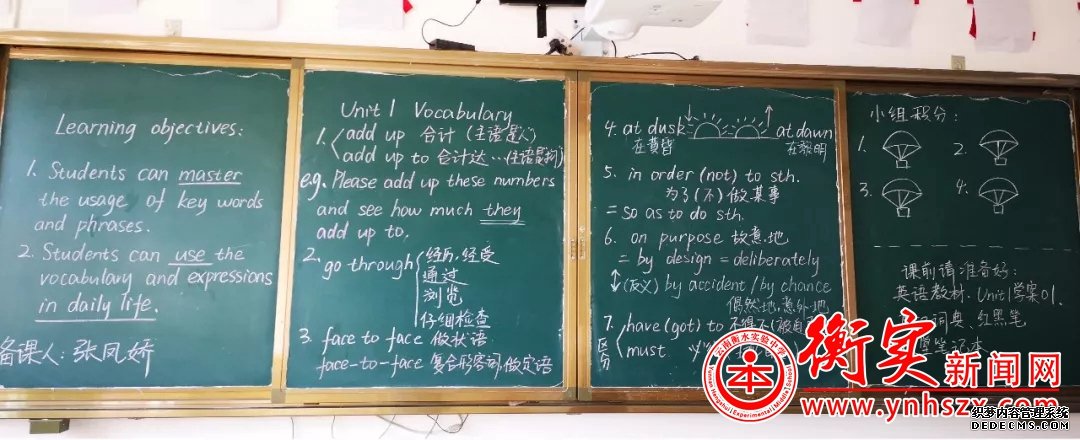 Learning objectives:
1. Students can master
the usage of key words
and phrases.
2. Students can use the
vocabulary and expressions
in daily life.
备课人：张凤娇
Unit 1 Vocabulary
1. add up 合计 (主语是人)
add up to 合计达…(主语是物)
e.g. Please add up these numbers
and see how much they
add up to.
2. go through 经历, 经受
通过
浏览
仔细检查
3. face to face 做状语
face-to-face 复合形容词, 做定语
4. at dusk at dawn
在黄昏 在黎明
5. in order (not) to sth.
为了(不)做某事
= so as to do sth.
6. on purpose 故意地
= by design = deliberately
(反义) by accident / by chance
偶然地, 意外地
7. have (got) to 不得不(被
must
区分
小组积分：
1. 2.
3. 4.
课前请准备好：
英语教材. Unit 1学案01.
词典、红黑笔
笔记本
云南衡水实验中学
本
衡实新闻网
www.ynhszx.com
织梦内容管理系统
DEDECMS.COM